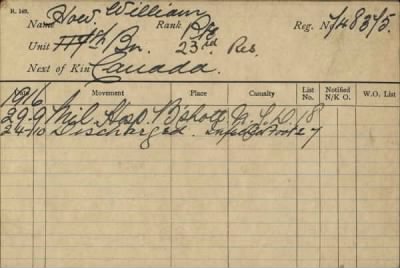 R. 149.
Name How. William
Rank Pte Reg. No. 748375.
Unit 117th Bn. 23rd Res.
Next of Kin Canada.
Date Movement Place Casualty List No. Notified N/K O. W.O. List
1916
29-9 Mil. Hosp. B'shott. N.Y.D. 18
24-10 Discharged. Infected Foot 27